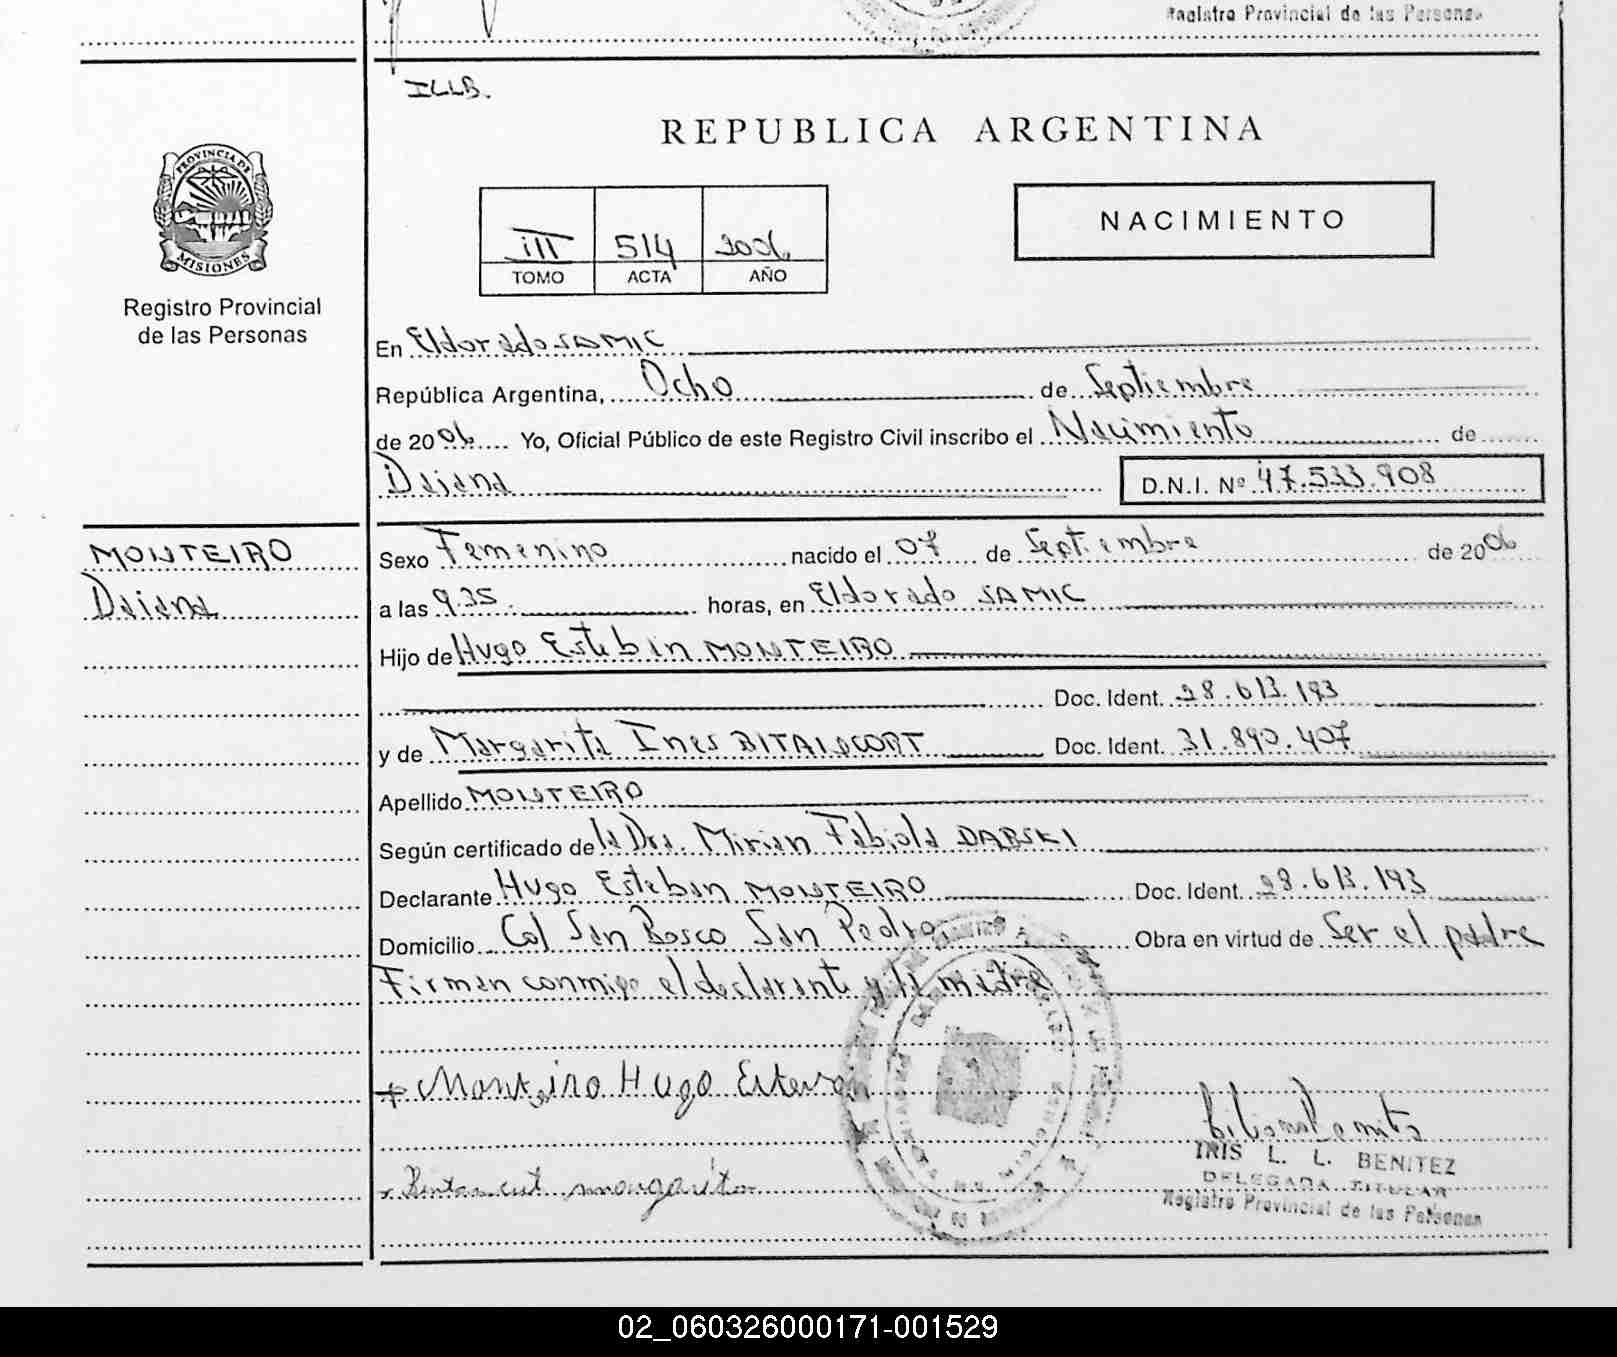 Registro Provincial de las Personas
ILLB.
REPUBLICA ARGENTINA
PROVINCIA DE
MISIONES
Registro Provincial
de las Personas
III 514 2006
TOMO ACTA AÑO
NACIMIENTO
En Eldorado SAMIC
República Argentina, Ocho de Septiembre
de 2006 Yo, Oficial Público de este Registro Civil inscribo el Nacimiento de
Daiana D.N.I. Nº 47.533.908
MONTEIRO
Daiana
Sexo Femenino nacido el 07 de Septiembre de 2006
a las 9.35. horas, en Eldorado SAMIC
Hijo de Hugo Esteban MONTEIRO
Doc. Ident. 28.613.193
y de Margarita Ines Doc. Ident. 31.890.407
Apellido MONTEIRO
Según certificado de la Dra. Mirian Fabiola DABSKI
Declarante Hugo Esteban MONTEIRO Doc. Ident. 28.613.193
Domicilio Col San Bosco San Pedro Obra en virtud de Ser el padre
Firman conmigo el declarante y la madre
Monteiro Hugo Estevan
margarita
INIS L. L. BENITEZ
DELEGADA TITULAR
Registro Provincial de las Personas
02_060326000171-001529